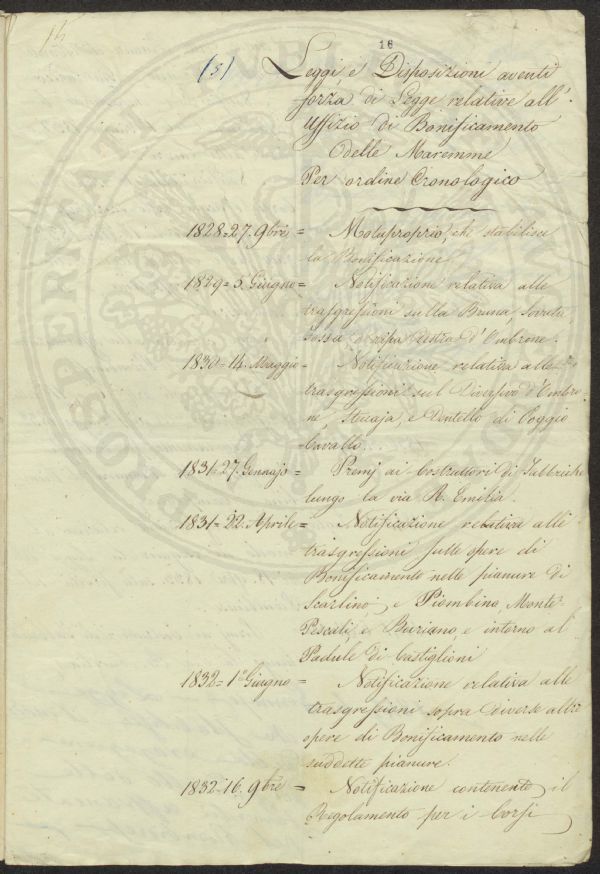 15
16
(5) Leggi e Disposizioni aventi
forza di Legge relative all'
Uffizio di Bonificamento
delle Maremme
Per ordine Cronologico
1828=27. 9bre = Motuproprio, che stabilisce
la Bonificazione.
1829=5. Giugno = Notificazione relativa alle
trasgressioni sulla Bruna,
fossa e ripa destra d'Ombrone.
1830=14. Maggio = Notificazione relativa alle
trasgressioni sul Diversivo d'Ombro-
ne, Steccaja, e Dentello di Poggio
Cavallo...
1831=27. Gennajo = Premj ai Costruttori di Fabbriche
lungo la via R. Emilia.
1831=22. Aprile = Notificazione relativa alle
trasgressioni sulle opere di
Bonificamento nelle pianure di
Scarlino, e Piombino, Monte
Pescali, e Buriano, e intorno al
Padule di Castiglioni
1832=1º Giugno = Notificazione relativa alle
trasgressioni sopra diverse altre
opere di Bonificamento nelle
suddette pianure.
1832=16. 9bre = Notificazione contenente il
Regolamento per i Corsi
PROSPERITATI